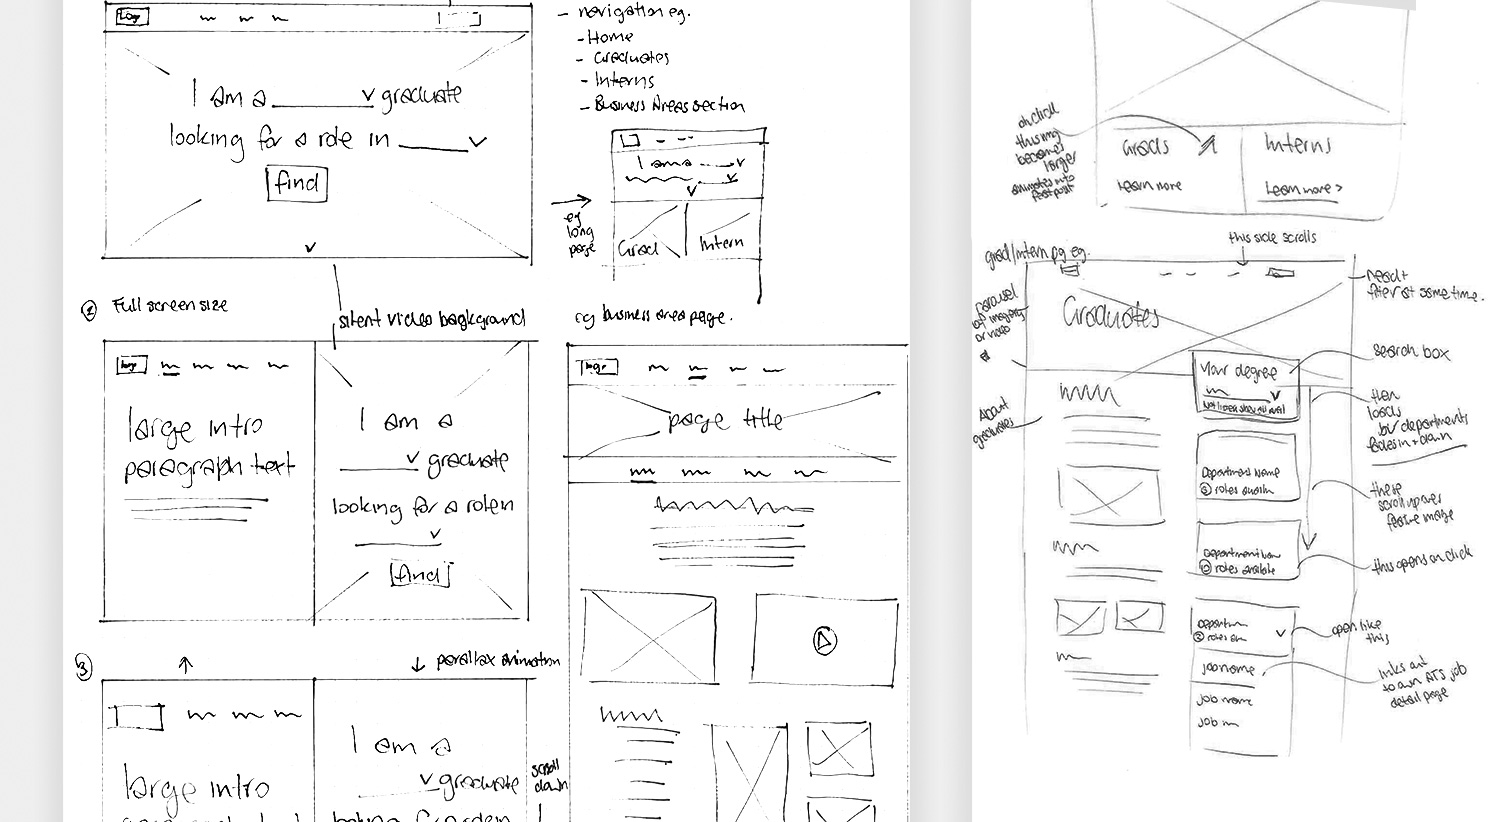 Logo
I am a ________ v graduate
looking for a role in ______ v
find
v
- navigation eg.
- Home
- Graduates
- Interns
- Business Areas section
I am a ---- v
v
v
eg
long
page
Grad
Intern
② Full screen size
silent video background
logo
large intro
paragraph text
I am a
v graduate
looking for a role in
v
find
eg business area page.
logo
page title
③
↑
↓ parallax animation
large intro
I am a
v graduate
scroll
down
on click
this img
becomes
larger
animates into
Grads
Interns
Learn more
Learn more >
this side scrolls
grad/intern pg eg.
carousel
of imagery
or video
Graduates
About
graduates
Your degree
v
Department Name
roles
Department
roles available
Department
v
job name
job name
job
filter at same time.
search box
then
loads
departments
these
scroll up over
feature image
this opens on click
open like
this
links out
to own ATS job
detail page